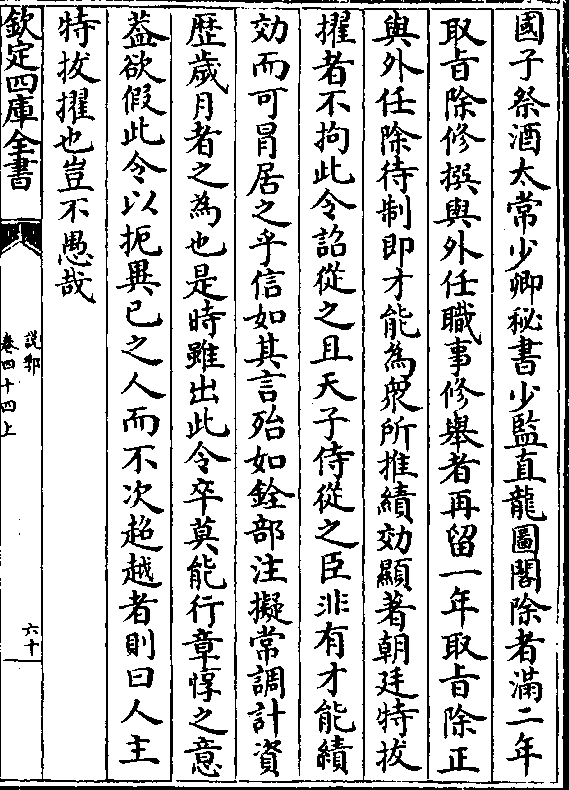 國子祭酒太常少卿秘書少監直龍圖閣除者滿二年
取旨除修撰與外任職事修舉者再留一年取旨除正
與外任除待制即才能為衆所推績効顯著朝廷特拔
擢者不拘此令詔從之且天子侍從之臣非有才能績
効而可冒居之乎信如其言殆如銓部注擬常調計資
歴歲月者之為也是時雖出此令卒莫能行章惇之意
葢欲假此令以扼異已之人而不次超越者則曰人主
特拔擢也豈不愚哉
欽定四庫全書
説郛
卷四十四上
六十